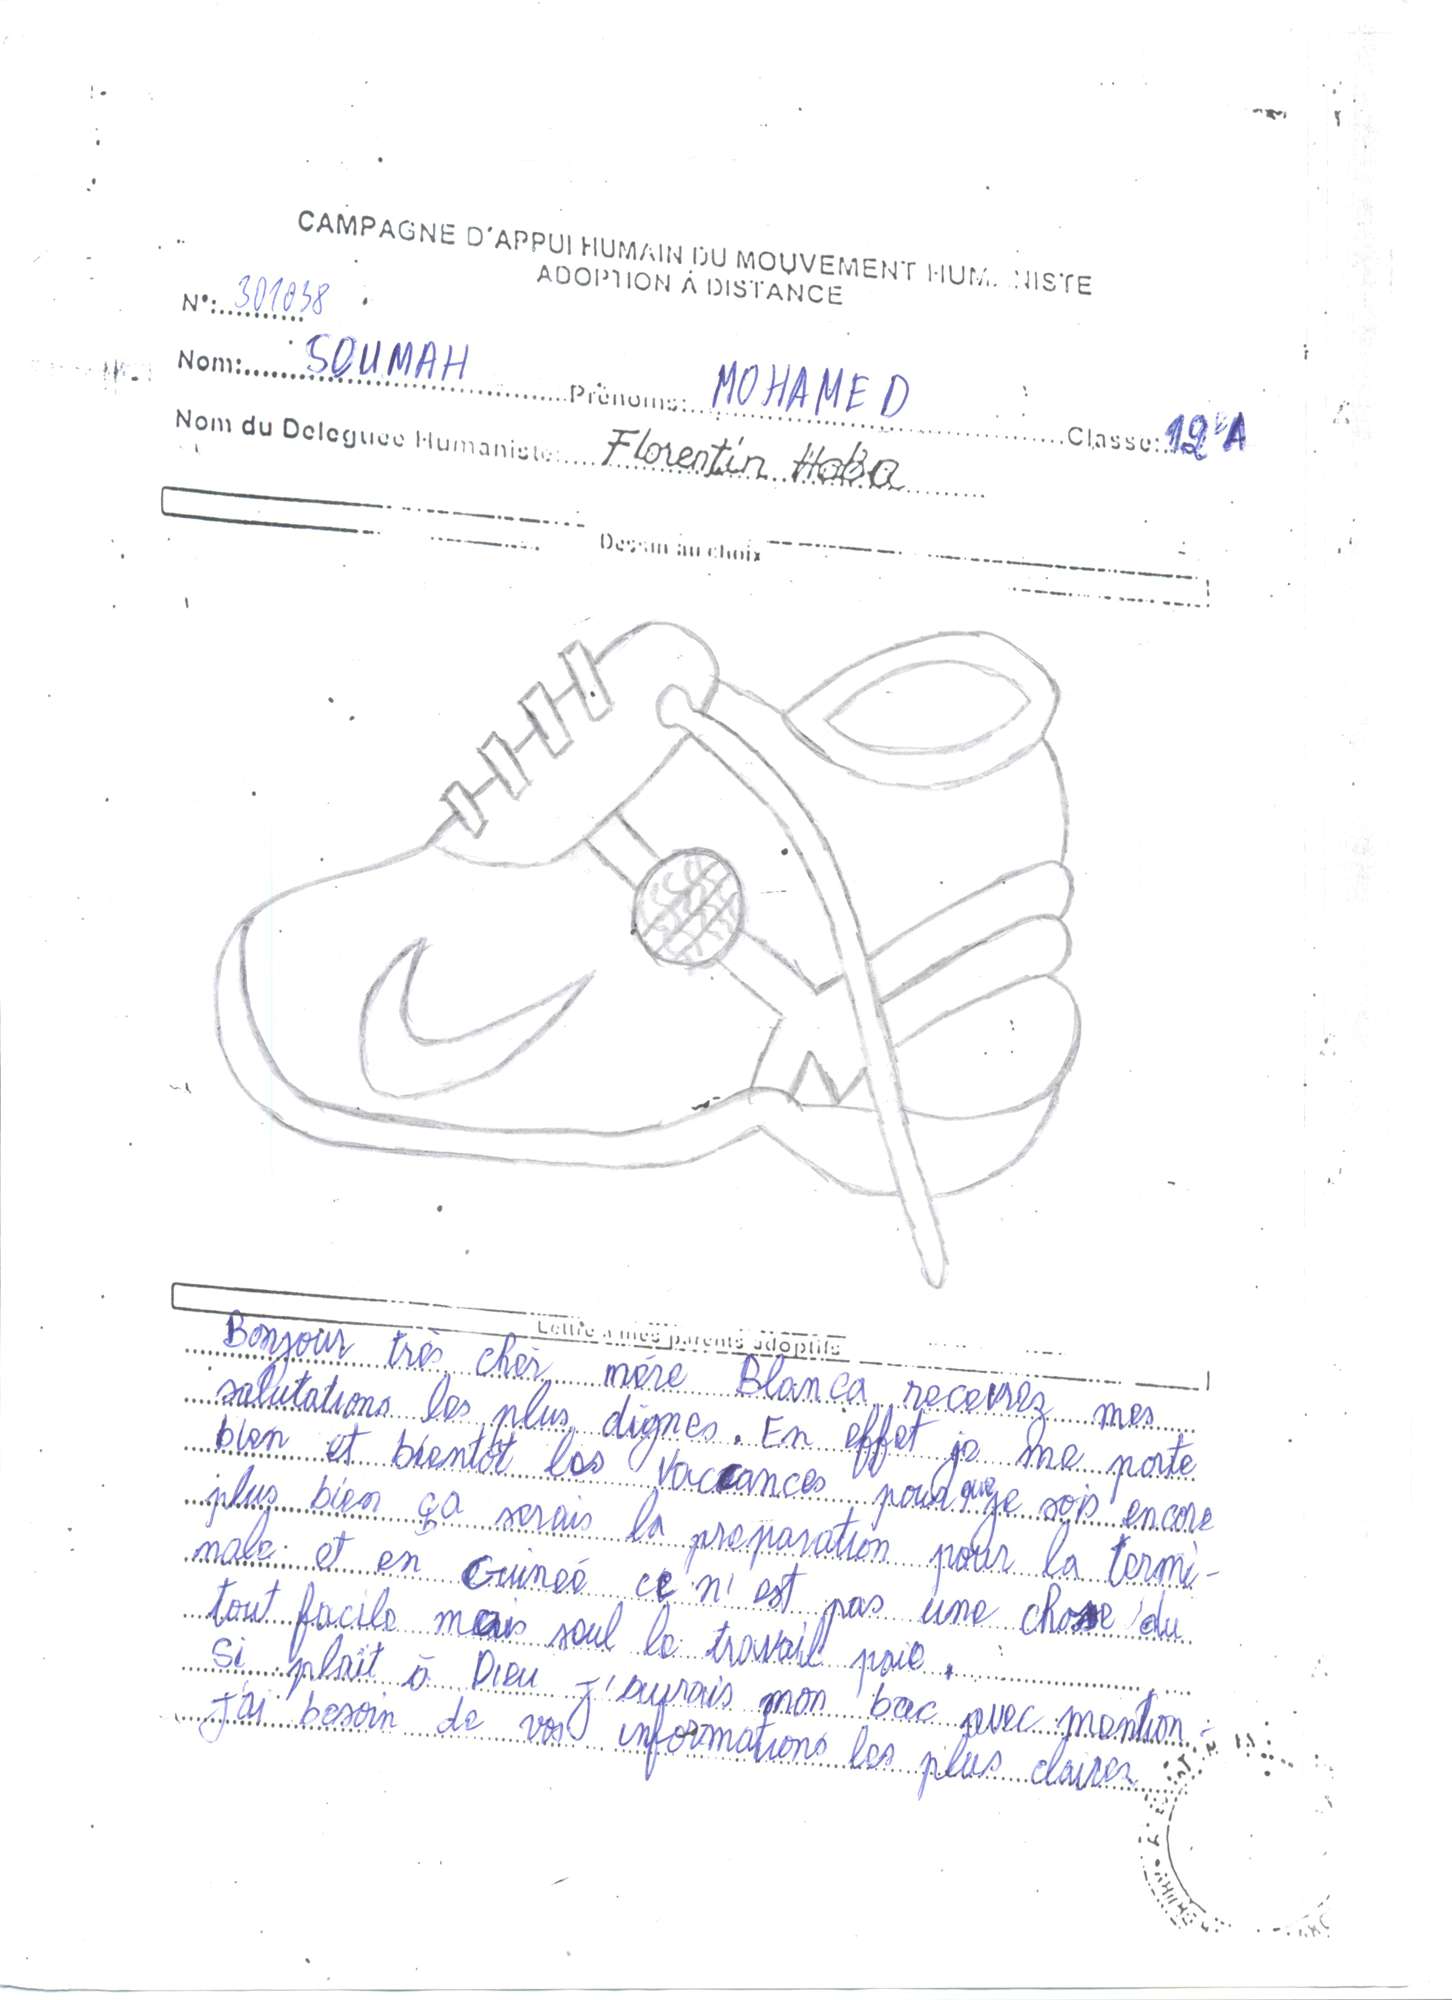 CAMPAGNE D'APPUI HUMAIN DU MOUVEMENT HUMANISTE
ADOPTION À DISTANCE
N°: 301038
Nom: SOUMAH Prénoms: MOHAMED Classe: 12e A
Nom du Deleguée Humaniste: Florentin Haba
Dessin au choix
Lettre à mes parents adoptifs
Bonjour très cher mère Blanca recevrez mes
salutations les plus dignes. En effet je me porte
bien et bientôt les vaccances pour que je sois encore
plus bien ça serais la preparation pour la termi-
nale et en Guinée ce n'est pas une chose du
tout facile mais seul le travail paie.
Si plait à Dieu j'aurais mon bac avec mention.
J'ai besoin de vos informations les plus claires